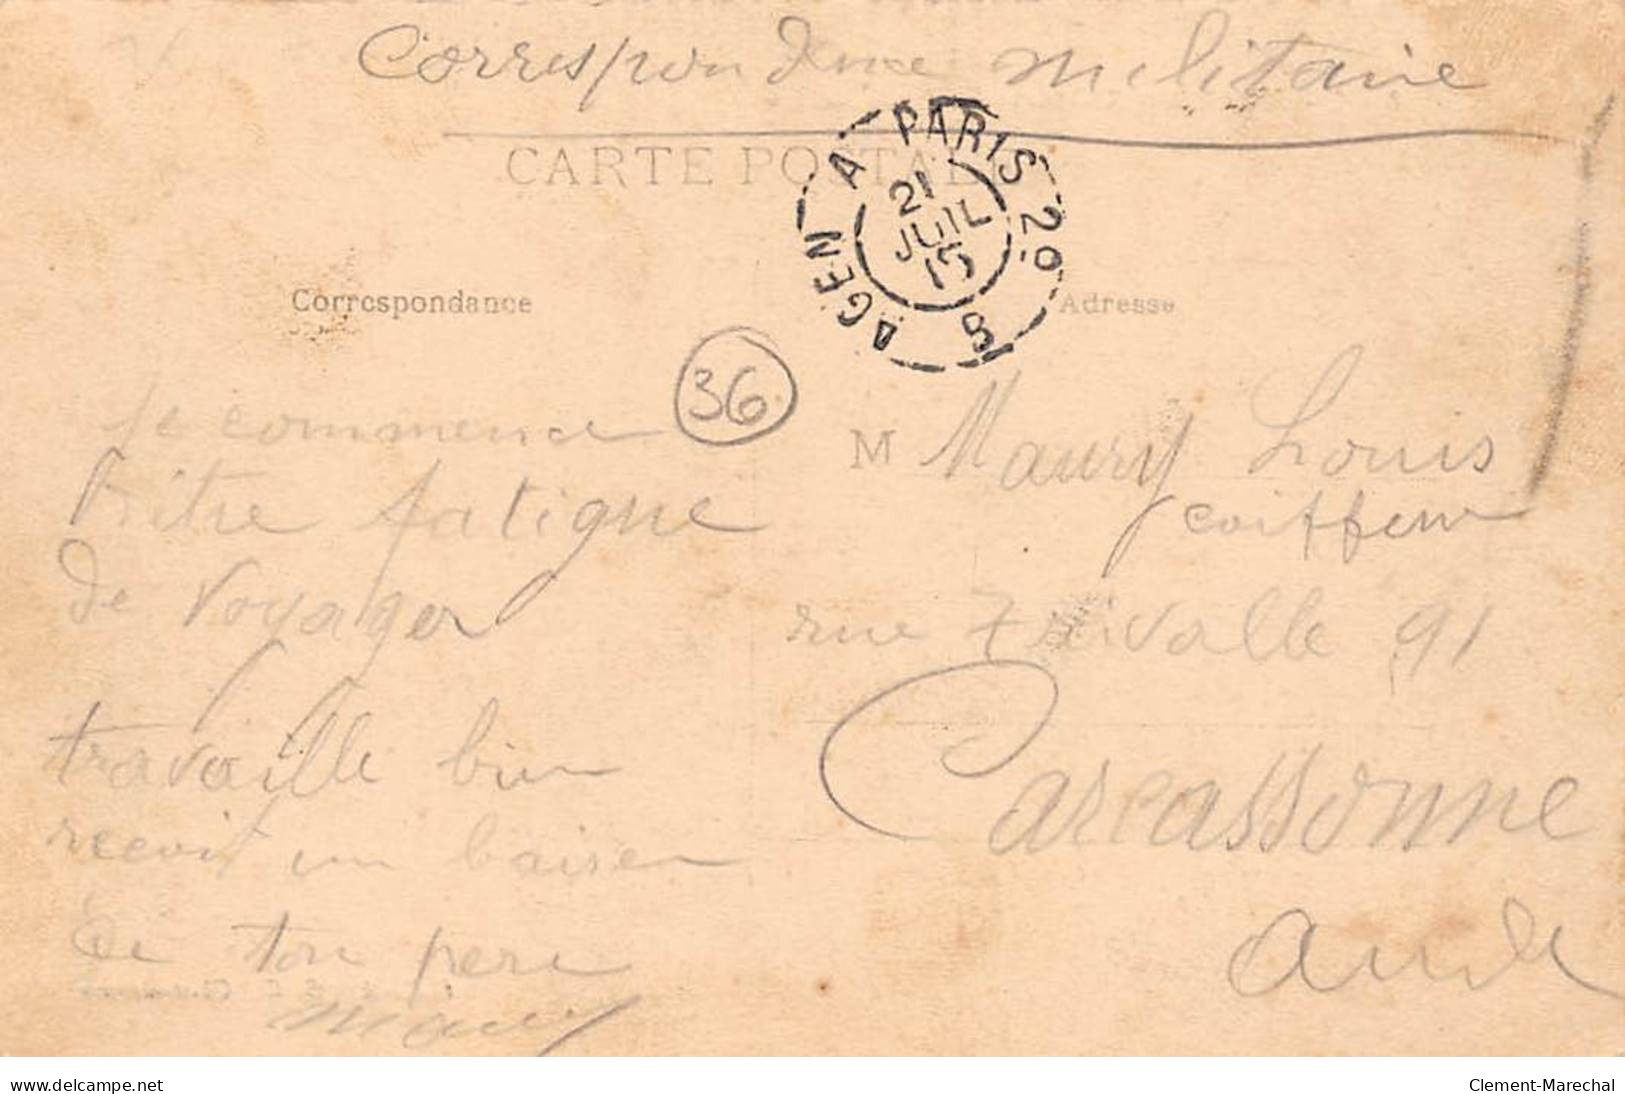 Correspondence militaire
CARTE POSTALE
AGEN A PARIS 2o B
21
JUIL
15
Correspondance
Adresse
36
je commence
d'être fatigue
de voyager
travaille bien
recoit un baiser
de ton pere
Maury
M Maury Louis
coiffeur
rue Trivalle 91
Carcassonne
Aude
www.delcampe.net
Clement-Marechal